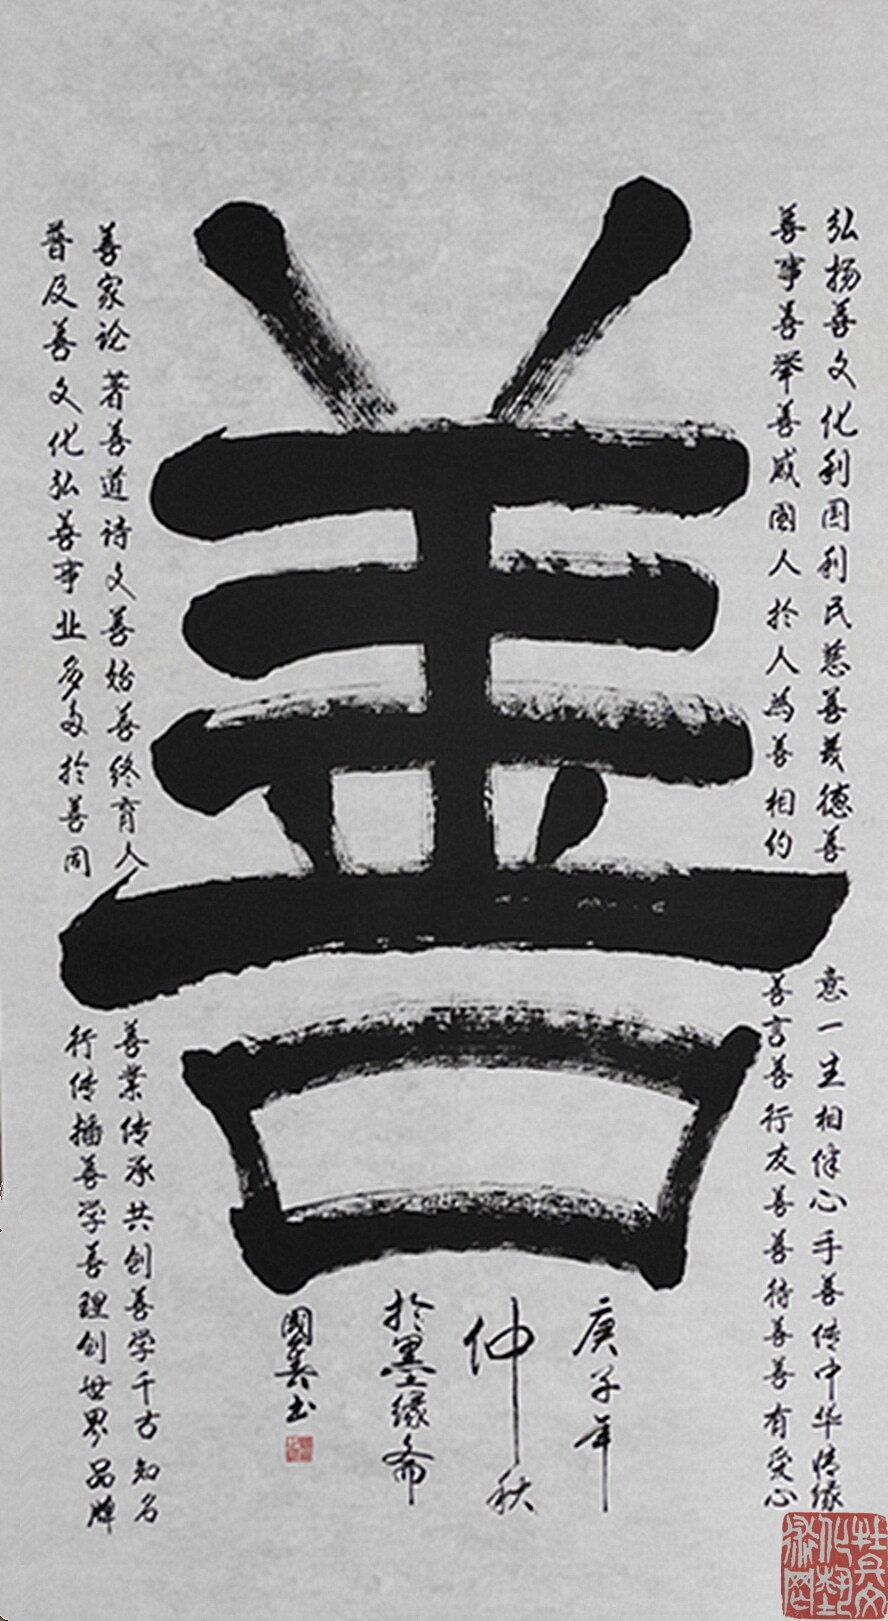 善
弘扬善文化利国利民慈善义德善
善事善举善感国人於人为善相约
意一生相伴心手善传中华情缘
善言善行友善善待善善有爱心
善家论著善道诗文善始善终育人
普及善文化弘善事业多多於善同
善业传承共创善学千古知名
行传播善学善理创世界品牌
庚子年
仲秋
於墨缘斋
國义书
牡丹文化艺术网